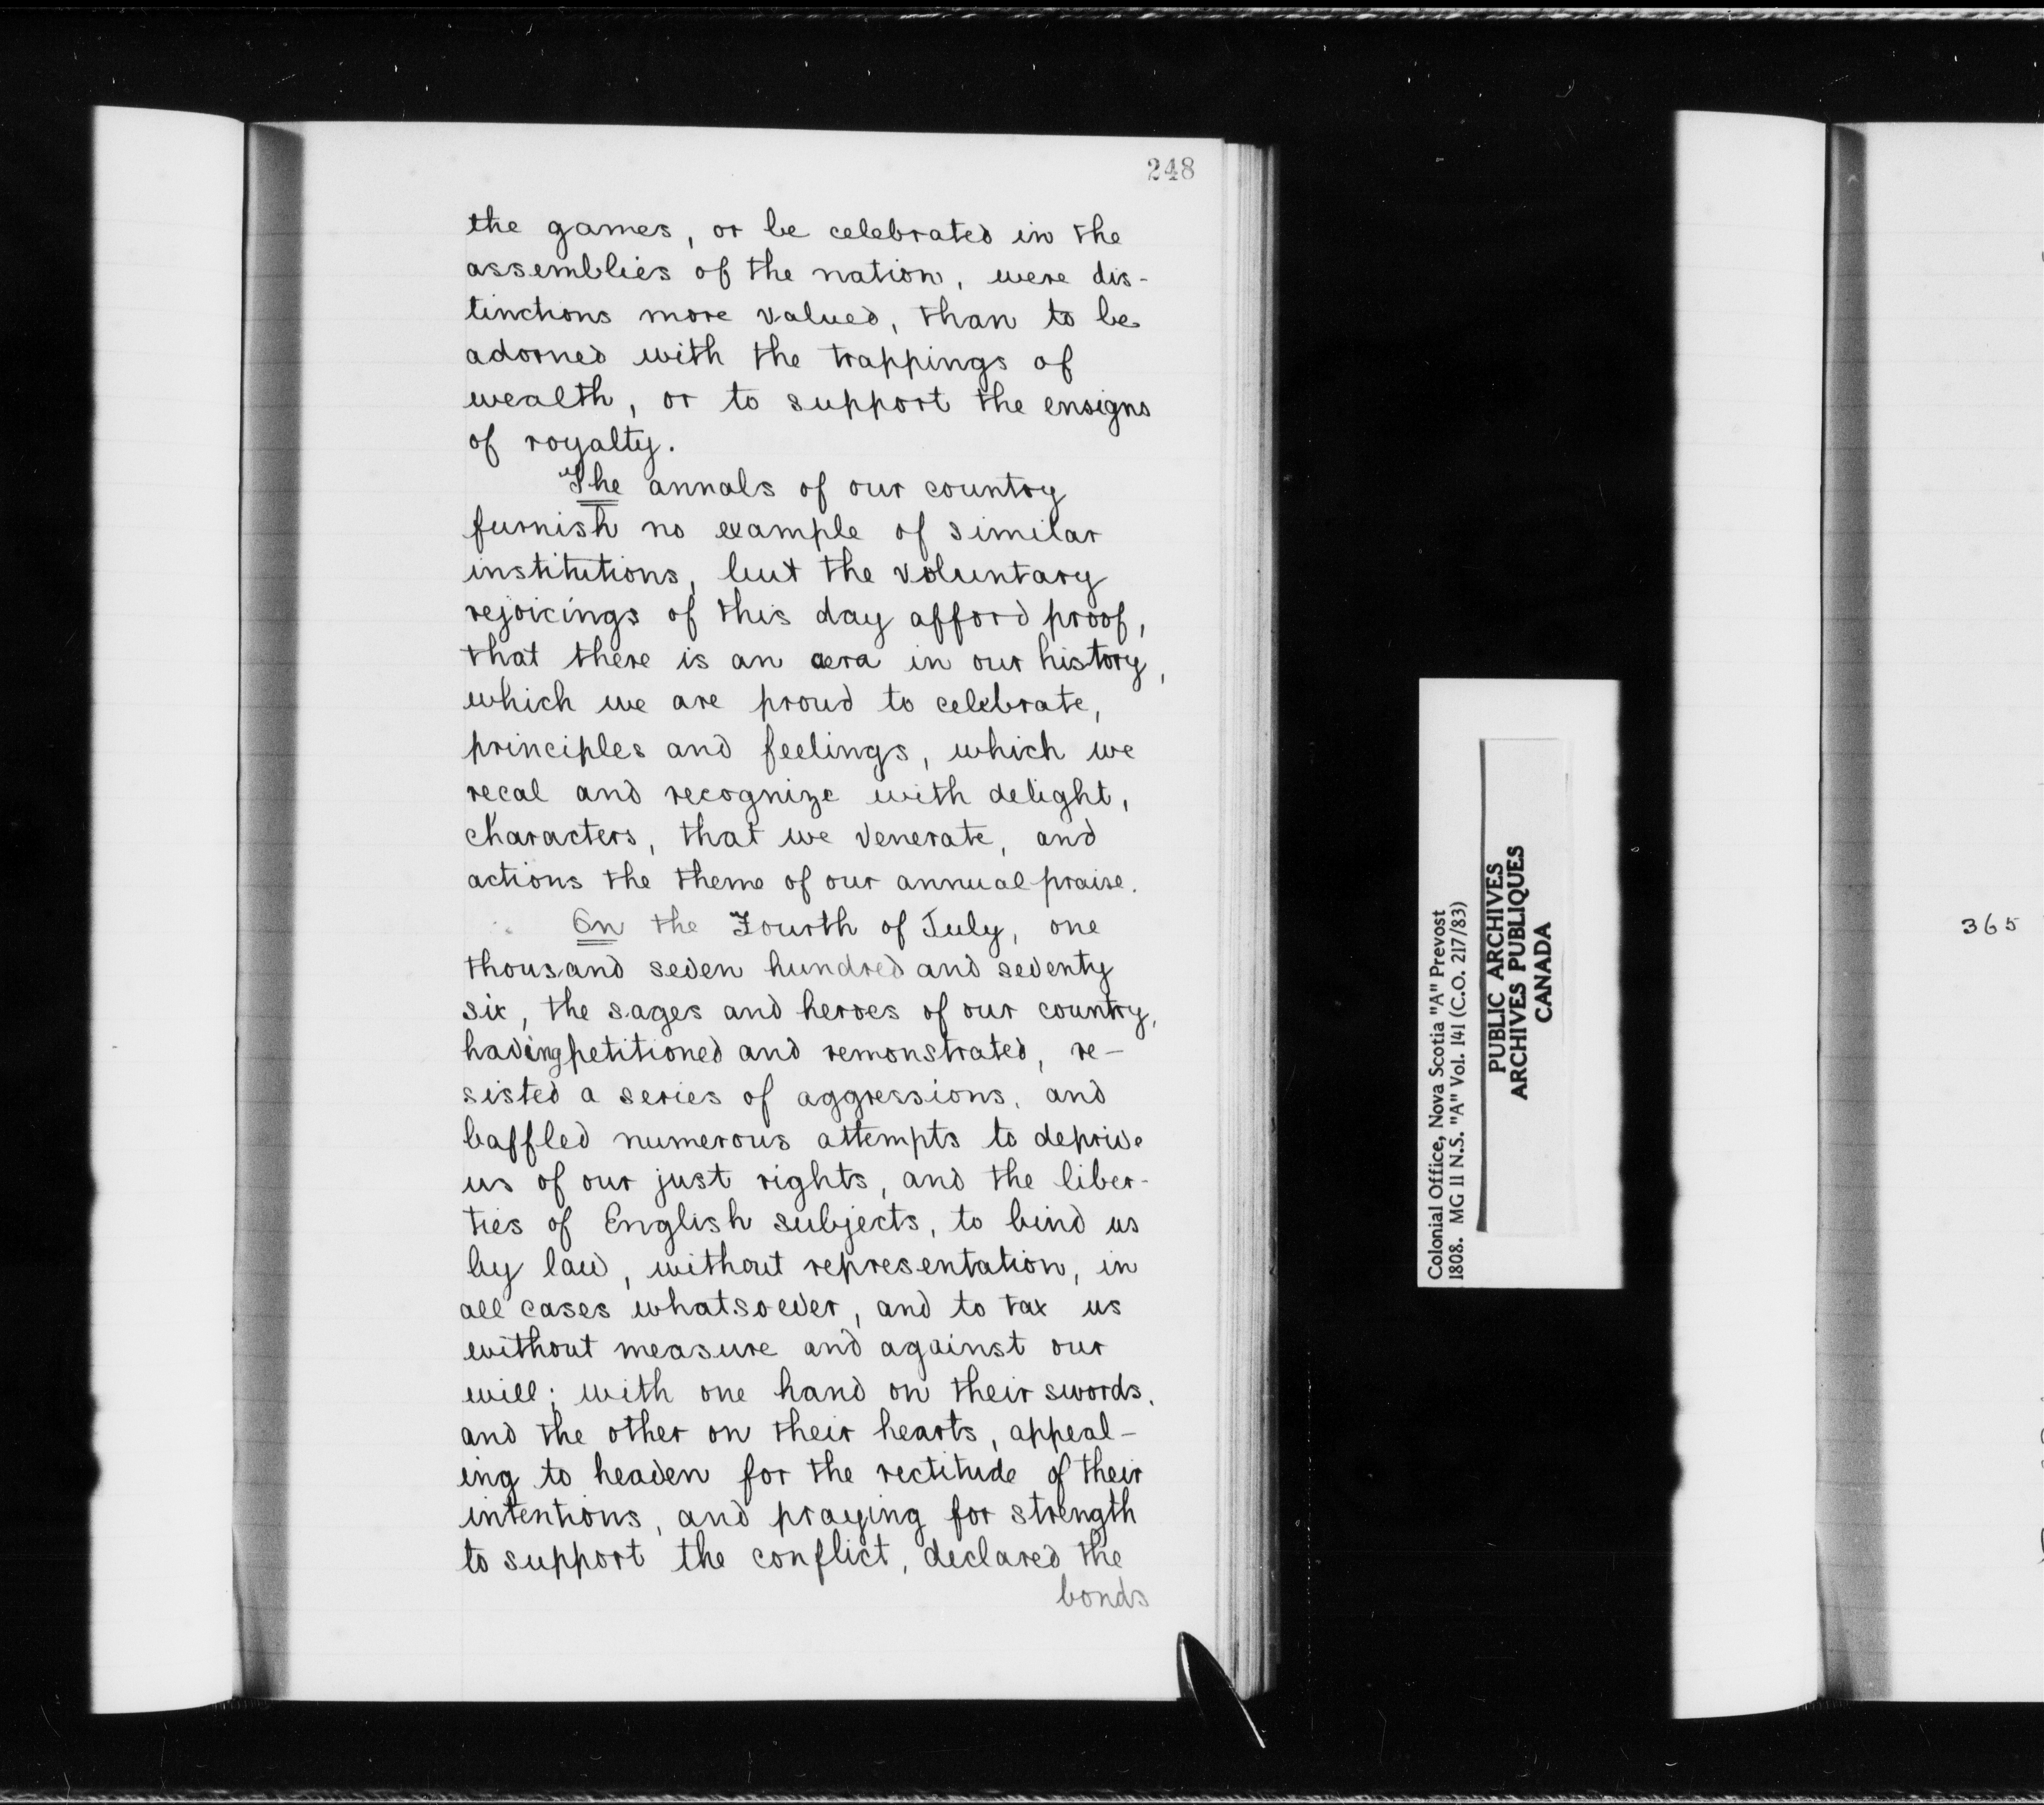 248
the games, or be celebrated in the
assemblies of the nation, were dis-
tinctions more valued, than to be
adorned with the trappings of
wealth, or to support the ensigns
of royalty.
The annals of our country
furnish no example of similar
institutions, but the voluntary
rejoicings of this day afford proof,
that there is an æra in our history,
which we are proud to celebrate,
principles and feelings, which we
recal and recognize with delight,
characters, that we venerate, and
actions the theme of our annual praise.
On the Fourth of July, one
thousand seven hundred and seventy
six, the sages and heroes of our country,
having petitioned and remonstrated, re-
sisted a series of aggressions, and
baffled numerous attempts to deprive
us of our just rights, and the liber-
ties of English subjects, to bind us
by law, without representation, in
all cases whatsoever, and to tax us
without measure and against our
will; with one hand on their swords,
and the other on their hearts, appeal-
ing to heaven for the rectitude of their
intentions, and praying for strength
to support the conflict, declared the
bonds
Colonial Office, Nova Scotia "A" Prevost
1808. MG 11 N.S. "A" Vol. 141 (C.O. 217/83)
PUBLIC ARCHIVES
ARCHIVES PUBLIQUES
CANADA
365